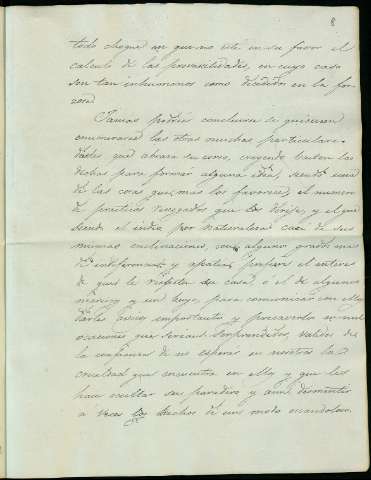 8
todo choque en que no esté en su favor el
calculo de las provavilidades, en cuyo caso
son tan inhumanos como decididos en la for-
zosa
Jamas podria concluirse si quisieran
enumerarse las otras muchas particulari-
dades que abraza su curso, creyendo bastan las
dichas para formar alguna idea, siendo una
de las cosas que mas los favorece, el numero
de practicos renegados que los dirije, y el que
siendo el indio por naturaleza casi de sus
mismas enclinaciones, con algunos grados mas
de indiferencia y apatia, prefiere el interes
de que le respeten su casa, o el de algunos
y un buey, para comunicar con ellos
darles avisos importantes y precaverlos en mil
ocaciones que serian sorprendidos, validos de
la confianza de no esperar en nosotros la
crueldad que encuentra en ellos y que les
hace ocultar su paradero y aun desmentir
a veces los hechos de un modo escandaloso.